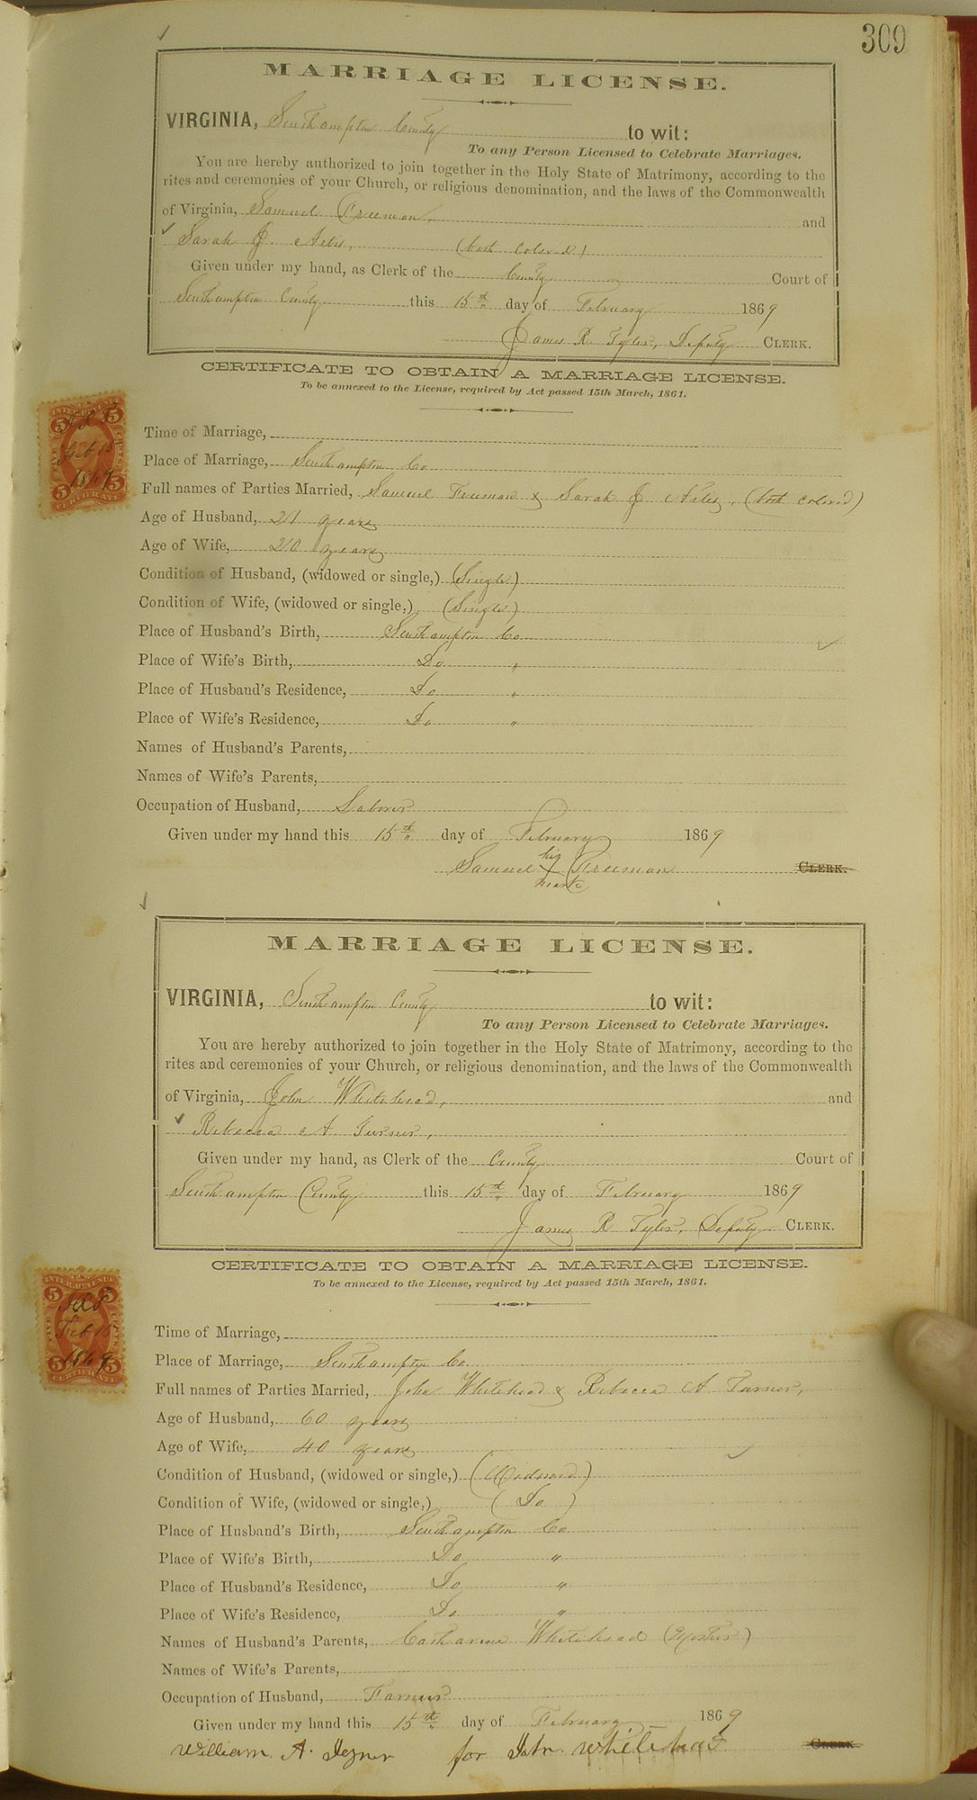 309
MARRIAGE LICENSE.
VIRGINIA, Southampton County to wit:
To any Person Licensed to Celebrate Marriages.
You are hereby authorized to join together in the Holy State of Matrimony, according to the
rites and ceremonies of your Church, or religious denomination, and the laws of the Commonwealth
of Virginia, Samuel Freeman, and
Sarah J. Artis, (both colored)
Given under my hand, as Clerk of the County Court of
Southampton County this 15th day of February 1869
James R. Tyler, Deputy CLERK.
CERTIFICATE TO OBTAIN A MARRIAGE LICENSE.
To be annexed to the License, required by Act passed 15th March, 1861.
Feb 15
1869
Time of Marriage,
Place of Marriage, Southampton Co
Full names of Parties Married, Samuel Freeman & Sarah J Artis, (both colored)
Age of Husband, 21 years
Age of Wife, 20 years
Condition of Husband, (widowed or single,) (Single)
Condition of Wife, (widowed or single,) (Single)
Place of Husband's Birth, Southampton Co
Place of Wife's Birth, Do "
Place of Husband's Residence, Do "
Place of Wife's Residence, Do "
Names of Husband's Parents,
Names of Wife's Parents,
Occupation of Husband, Laborer
Given under my hand this 15th day of February 1869
his
Samuel X Freeman CLERK.
mark
MARRIAGE LICENSE.
VIRGINIA, Southampton County to wit:
To any Person Licensed to Celebrate Marriages.
You are hereby authorized to join together in the Holy State of Matrimony, according to the
rites and ceremonies of your Church, or religious denomination, and the laws of the Commonwealth
of Virginia, John Whitehead, and
Rebecca A Turner,
Given under my hand, as Clerk of the County Court of
Southampton County this 15th day of February 1869
James R Tyler, Deputy CLERK.
CERTIFICATE TO OBTAIN A MARRIAGE LICENSE.
To be annexed to the License, required by Act passed 15th March, 1861.
Feb 15
1869
Time of Marriage,
Place of Marriage, Southampton Co
Full names of Parties Married, John Whitehead & Rebecca A Turner,
Age of Husband, 60 years
Age of Wife, 40 years
Condition of Husband, (widowed or single,) (Widowed)
Condition of Wife, (widowed or single,) (Do)
Place of Husband's Birth, Southampton Co
Place of Wife's Birth, Do "
Place of Husband's Residence, Do "
Place of Wife's Residence, Do "
Names of Husband's Parents, Catharine Whitehead
Names of Wife's Parents,
Occupation of Husband, Farmer
Given under my hand this 15th day of February 1869
William A. for John Whitehead CLERK